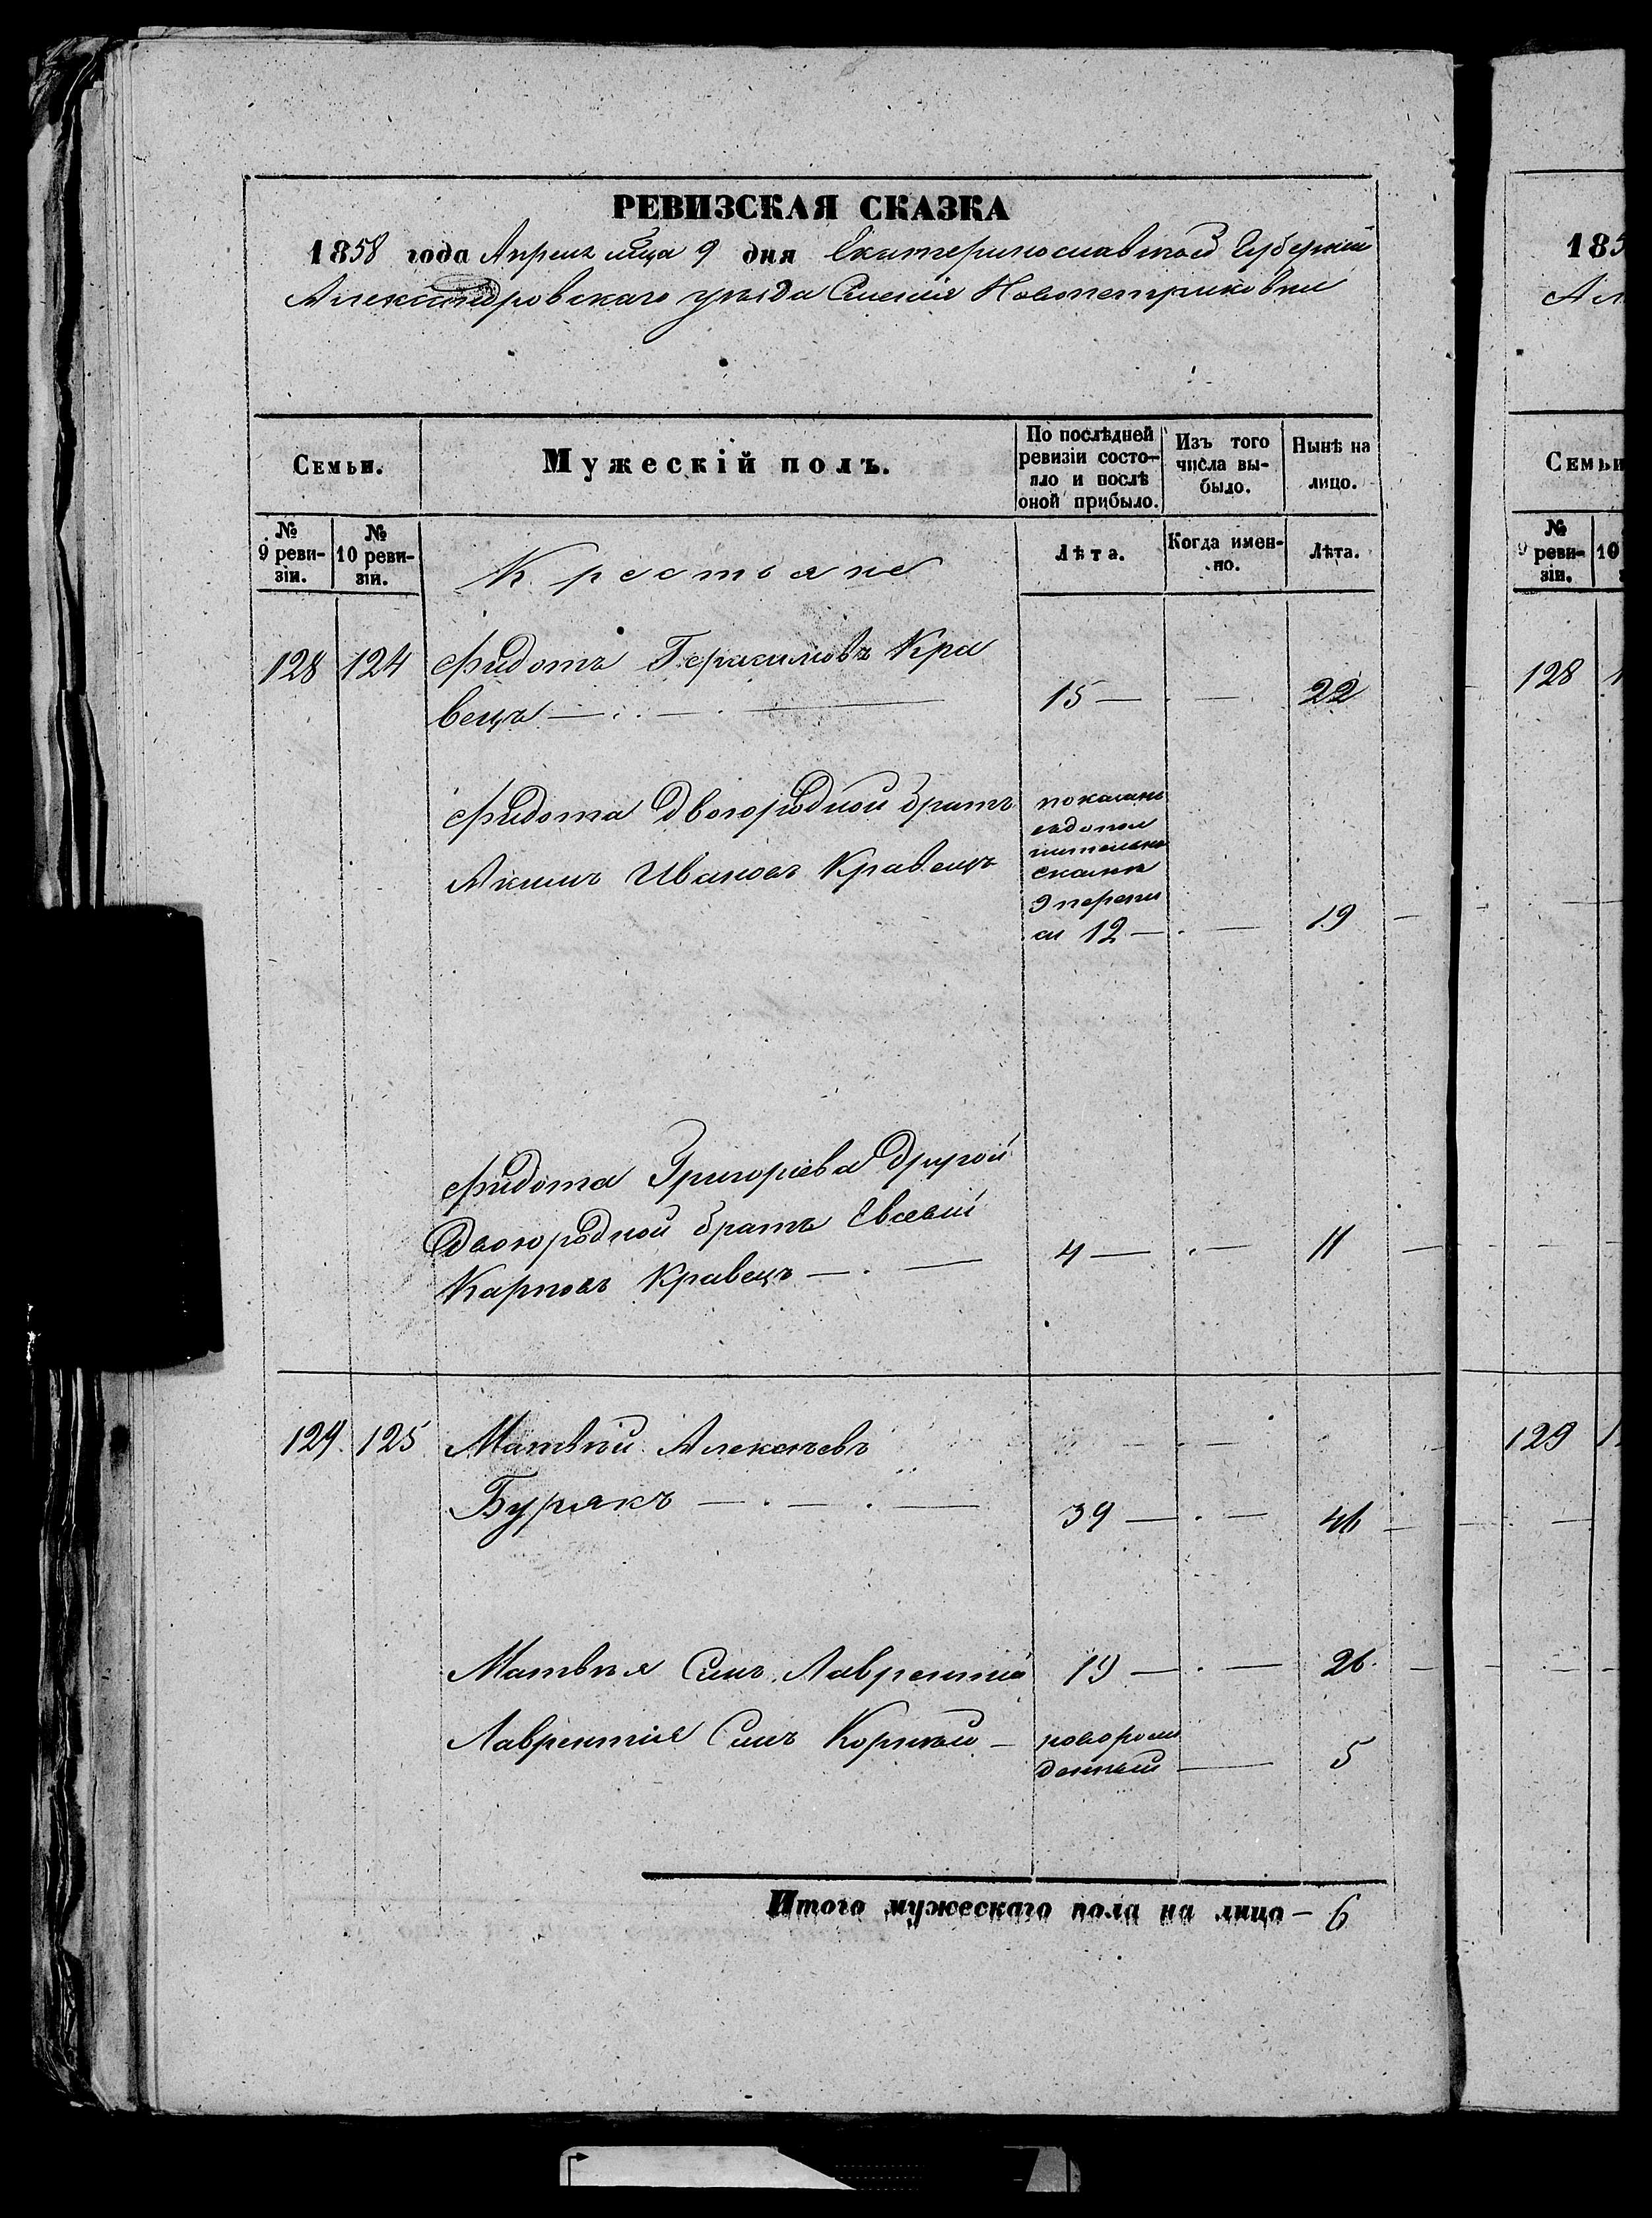 РЕВИЗСКАЯ СКАЗКА
1858 года Апреля мѣсца 9 дня Екатеринославской Губерніи
Александровскаго уѣзда Селенія Новопетриковки
Семьи.
Мужескій полъ.
По послѣдней ревизіи состо-
яло и послѣ
оной прибыло.
Изъ того
числа вы-
было.
Нынѣ на
лицо.
№
9 реви-
зіи.
№
10 реви-
зіи.
Крестьяне
Лѣта.
Когда имен-
но.
Лѣта.
128 124 Фидотъ Герасимовъ Кра
вецъ — 15 — — 22
Фидота Двоюродной братъ
Акимъ Ивановъ Кравецъ
показанъ
въ допол
нительной
сказкѣ
9 перепи
си 12 — — 19
Фидота Григорьева другой
Двоюродной братъ Евсевій
Карповъ Кравецъ — 4 — — 11
129. 125 Матвѣй Алексѣевъ
Бурякъ — 39 — — 46
Матвѣя Сынъ Лаврентій 19 — — 26
Лаврентія Сынъ Корнѣй —
новорож
денный — 5
Итого мужескаго пола на лицо — 6
185
Ал
Семьи
№
9 реви-
зіи.
10
128
129